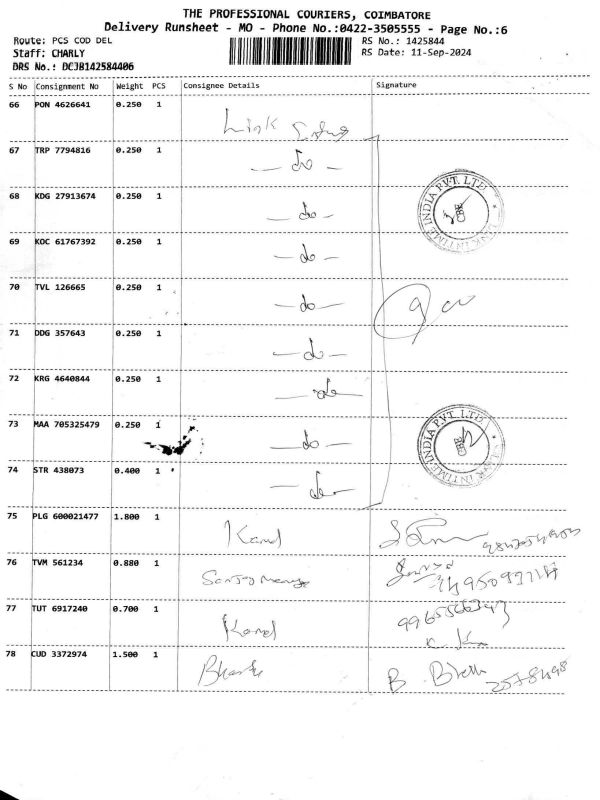 THE PROFESSIONAL COURIERS, COIMBATORE
Delivery Runsheet - MO - Phone No.:0422-3505555 - Page No.:6
Route: PCS COD DEL RS No.: 1425844
Staff: CHARLY RS Date: 11-Sep-2024
DRS No.: DCJB142584406
S No Consignment No Weight PCS Consignee Details Signature
66 PON 4626641 0.250 1 Link
67 TRP 7794816 0.250 1 — do —
68 KDG 27913674 0.250 1 — do —
69 KOC 61767392 0.250 1 — do —
70 TVL 126665 0.250 1 — do —
71 DDG 357643 0.250 1 — do —
72 KRG 4640844 0.250 1 — do —
73 MAA 705325479 0.250 1 — do —
74 STR 438073 0.400 1 — do —
LINK INTIME INDIA PVT. LTD * CBE
LINK INTIME INDIA PVT. LTD * CBE
75 PLG 600021477 1.800 1
76 TVM 561234 0.880 1
77 TUT 6917240 0.700 1
78 CUD 3372974 1.500 1 B